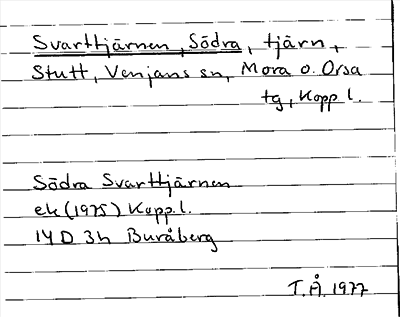 Svarttjärnen, Södra, tjärn,
Stutt, Venjans sn, Mora o. Orsa
tg, Kopp l.
Södra Svarttjärnen
ek (1975) Kopp.l.
14 D 3h Buråberg
T.Å. 1977